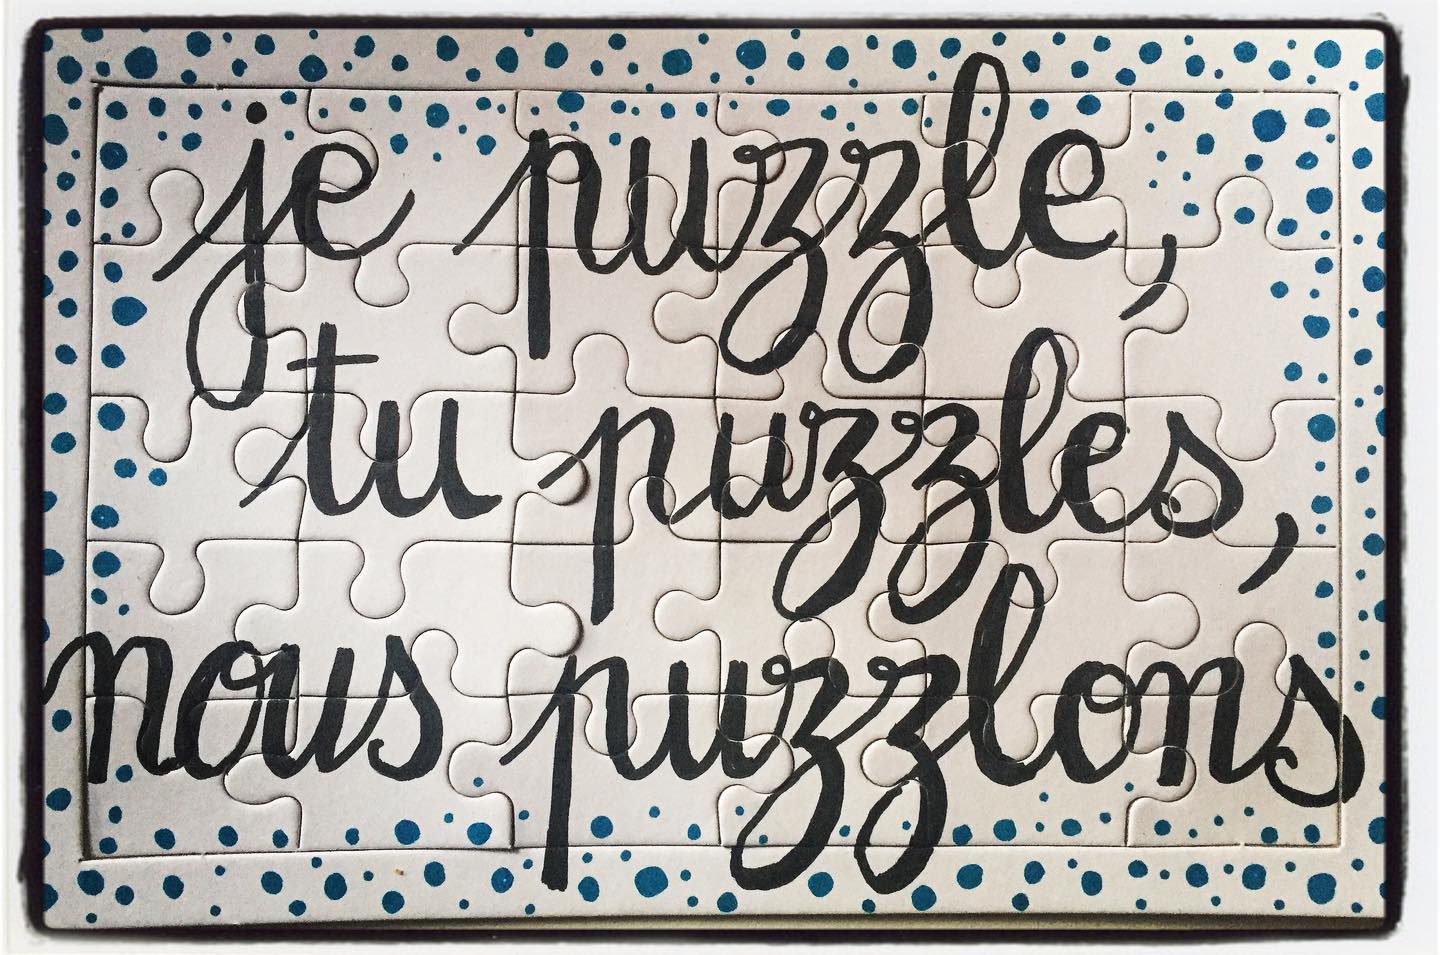 je puzzle,
tu puzzles,
nous puzzlons